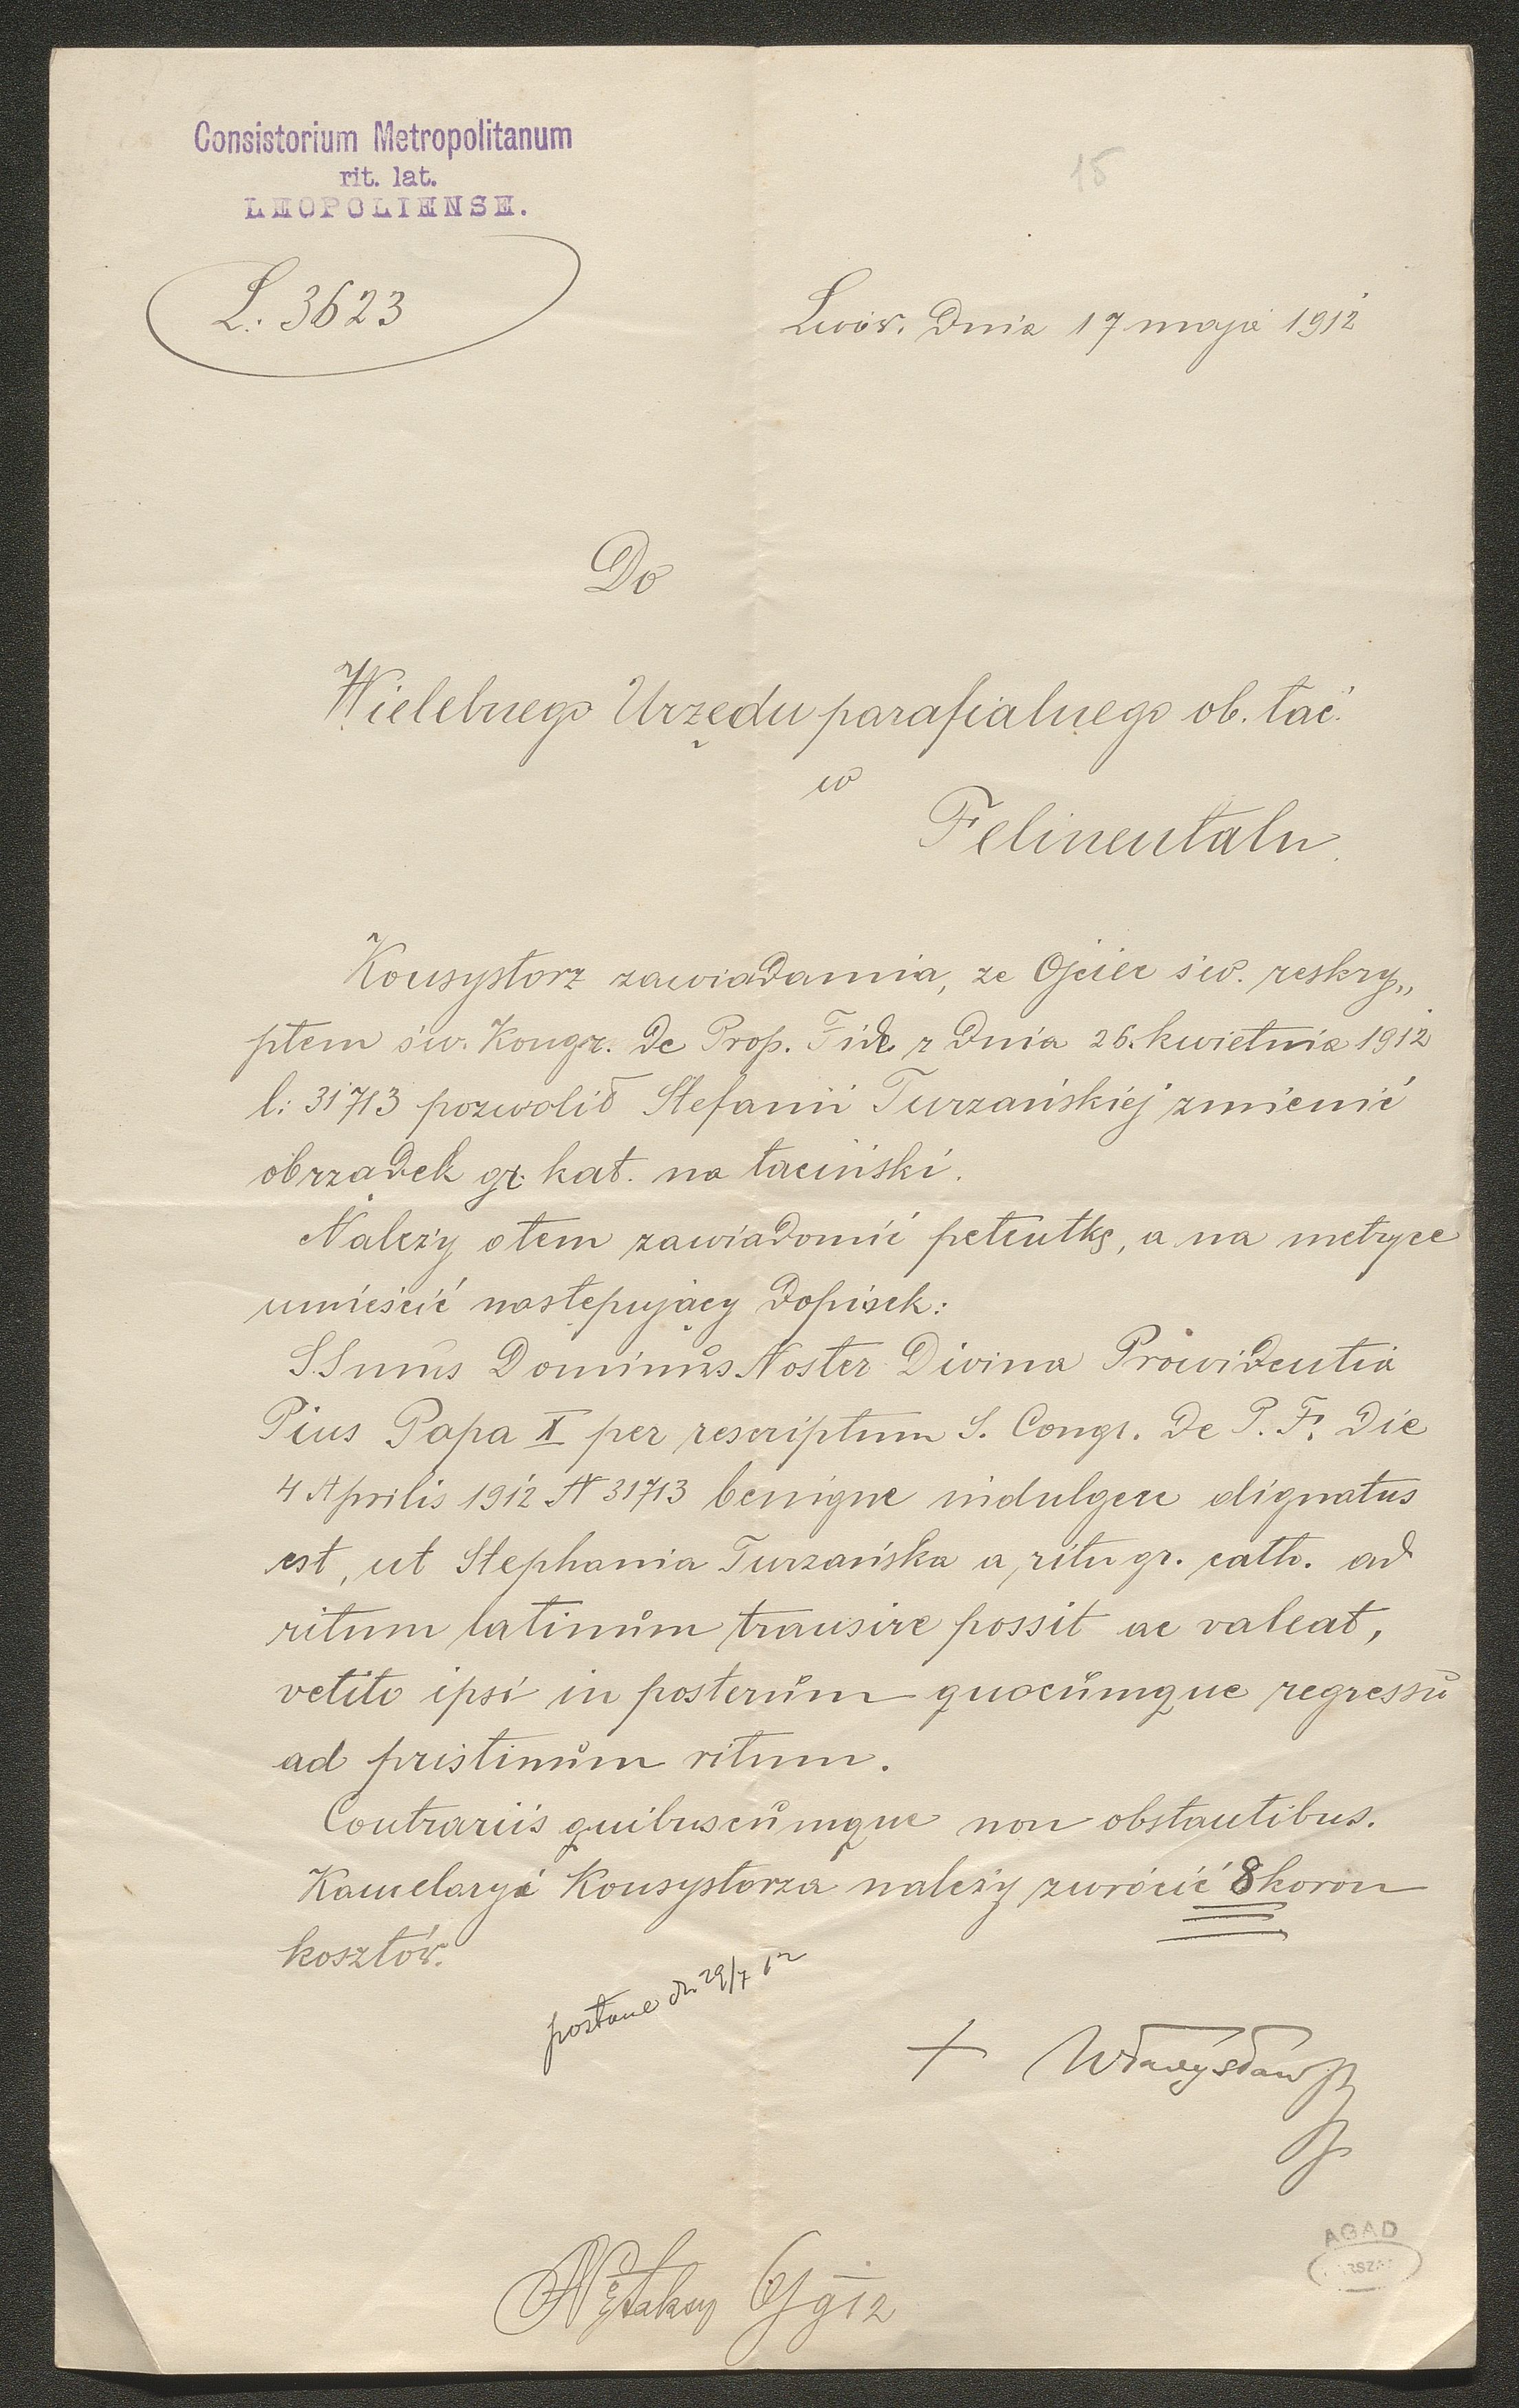 Consistorium Metropolitanum
rit. lat.
LEOPOLIENSE.
15
L. 3623
Lwów. dnia 17 maja 1912
Do
Wielebnego Urzędu parafialnego ob. łać.
w
Felinentalu
Konsystorz zawiadamia, ze Ojciec św. reskry„
ptem św. Kongr. de Prop. Fide z dnia 26. kwietnia 1912
l: 31713 pozwolił Stefanii Turzańskiej zmienić
obrządek gr. kat. na łaciński.
Należy otem zawiadomić petentkę, a na metryce
umieścić następujący dopisek:
S.Smus Dominus Noster Divina Prowidentia
Pius Papa X per rescriptum S. Congr. de P. F. die
4 Aprilis 1912 N 31713 benigne indulgere dignatus
est, ut Stephania Turzańska a ritu gr. cath. ad
ritum latinum transire possit ac valeat,
vetito ipsi in posterum quocumque regressu
ad pristinum ritum.
Contrariis quibuscumque non obstantibus.
Kancelaryi Konsystorza należy zwrócić 8 koron
kosztów.
posłane dn 29/7 12
+ Władysław
AGAD